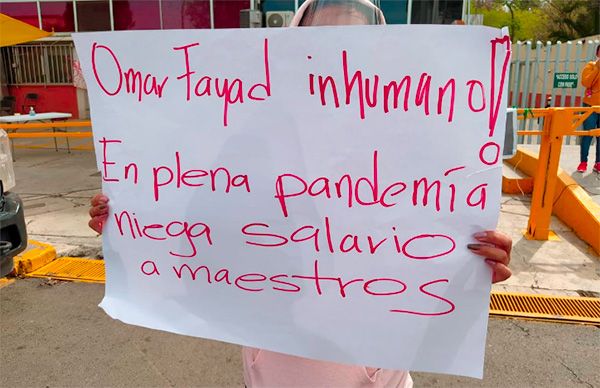 Omar Fayad inhumano!
En plena pandemía
niega salario
a maestros
"ACCESO SOLO
CON PASE"